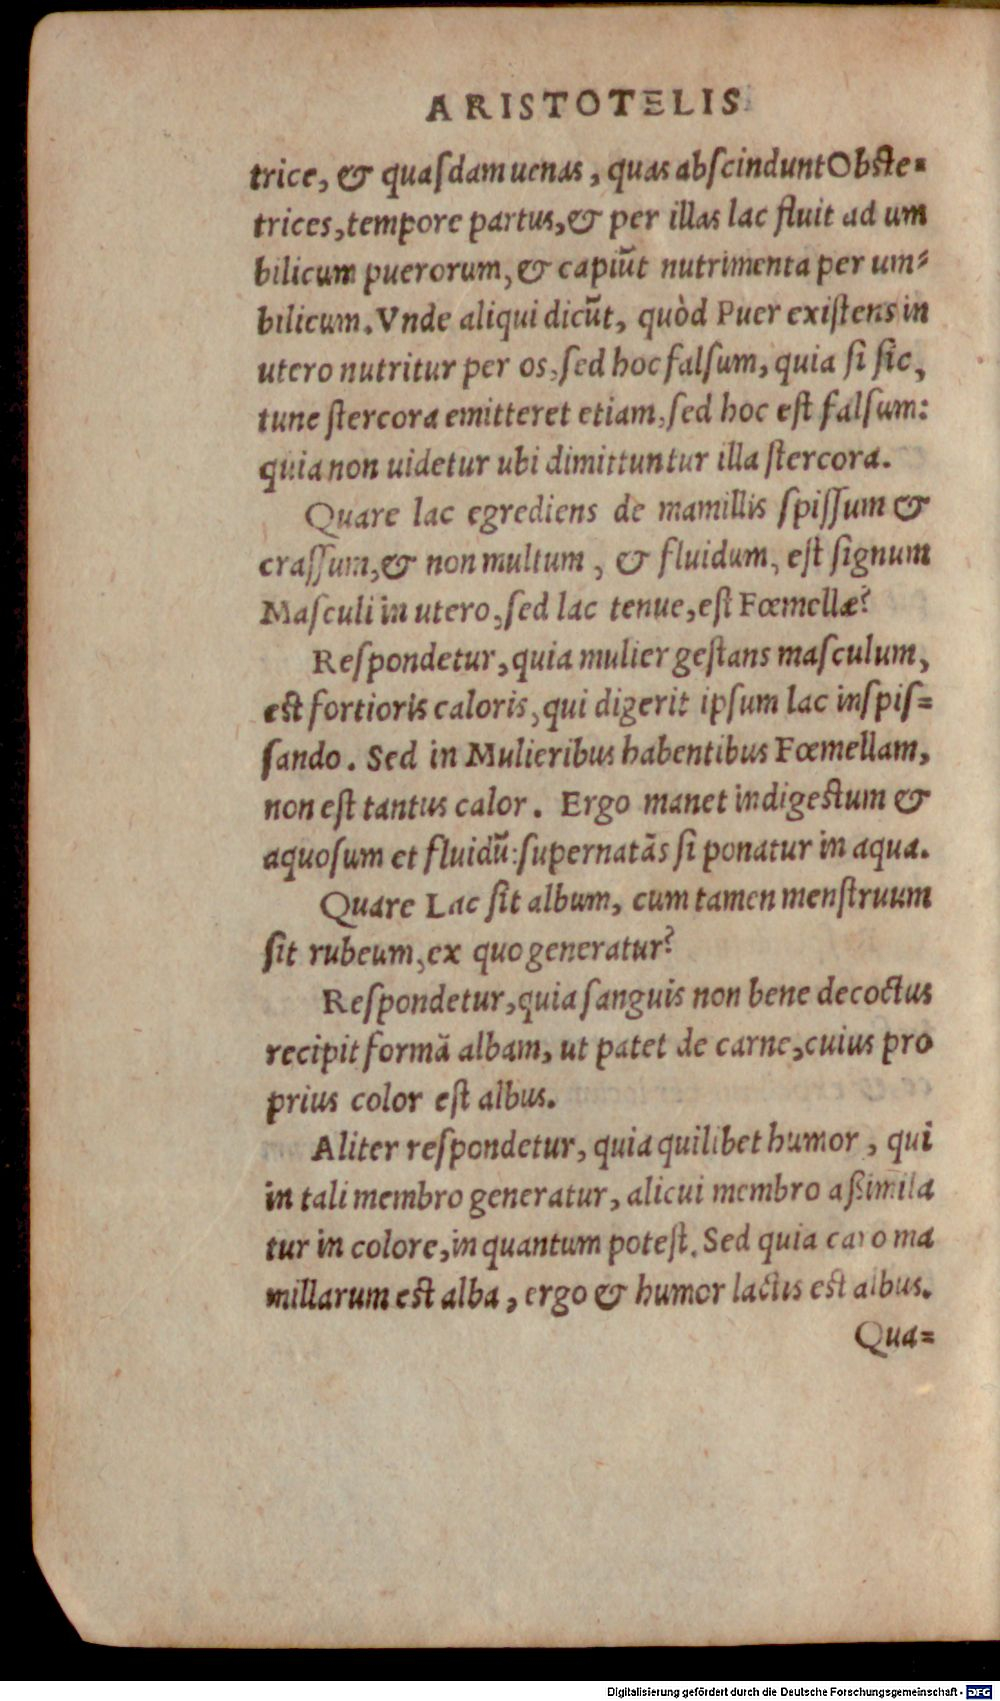 ARISTOTELIS
trice, & quaſdam uenas, quas abſcindunt Obſte-
trices, tempore partus, & per illas lac fluit ad um
bilicum puerorum, & capiūt nutrimenta per um-
bilicum. Vnde aliqui dicūt, quòd Puer exiſtens in
utero nutritur per os, ſed hoc falſum, quia ſi ſic,
tunc ſtercora emitteret etiam, ſed hoc eſt falſum:
quia non uidetur ubi dimittuntur illa ſtercora.
Quare lac egrediens de mamillis ſpiſſum &
craſſum, & non multum, & fluidum, eſt ſignum
Maſculi in utero, ſed lac tenue, eſt Fœmellæ?
Reſpondetur, quia mulier geſtans maſculum,
eſt fortioris caloris, qui digerit ipſum lac inſpiſ-
ſando. Sed in Mulieribus habentibus Fœmellam,
non eſt tantus calor. Ergo manet indigeſtum &
aquoſum et fluidū: ſupernatās ſi ponatur in aqua.
Quare Lac ſit album, cum tamen menſtruum
ſit rubeum, ex quo generatur?
Reſpondetur, quia ſanguis non bene decoctus
recipit formā albam, ut patet de carne, cuius pro
prius color eſt albus.
Aliter reſpondetur, quia quilibet humor, qui
in tali membro generatur, alicui membro aßimila
tur in colore, in quantum poteſt. Sed quia caro ma
millarum eſt alba, ergo & humor lactis eſt albus.
Qua-
Digitalisierung gefördert durch die Deutsche Forschungsgemeinschaft - DFG